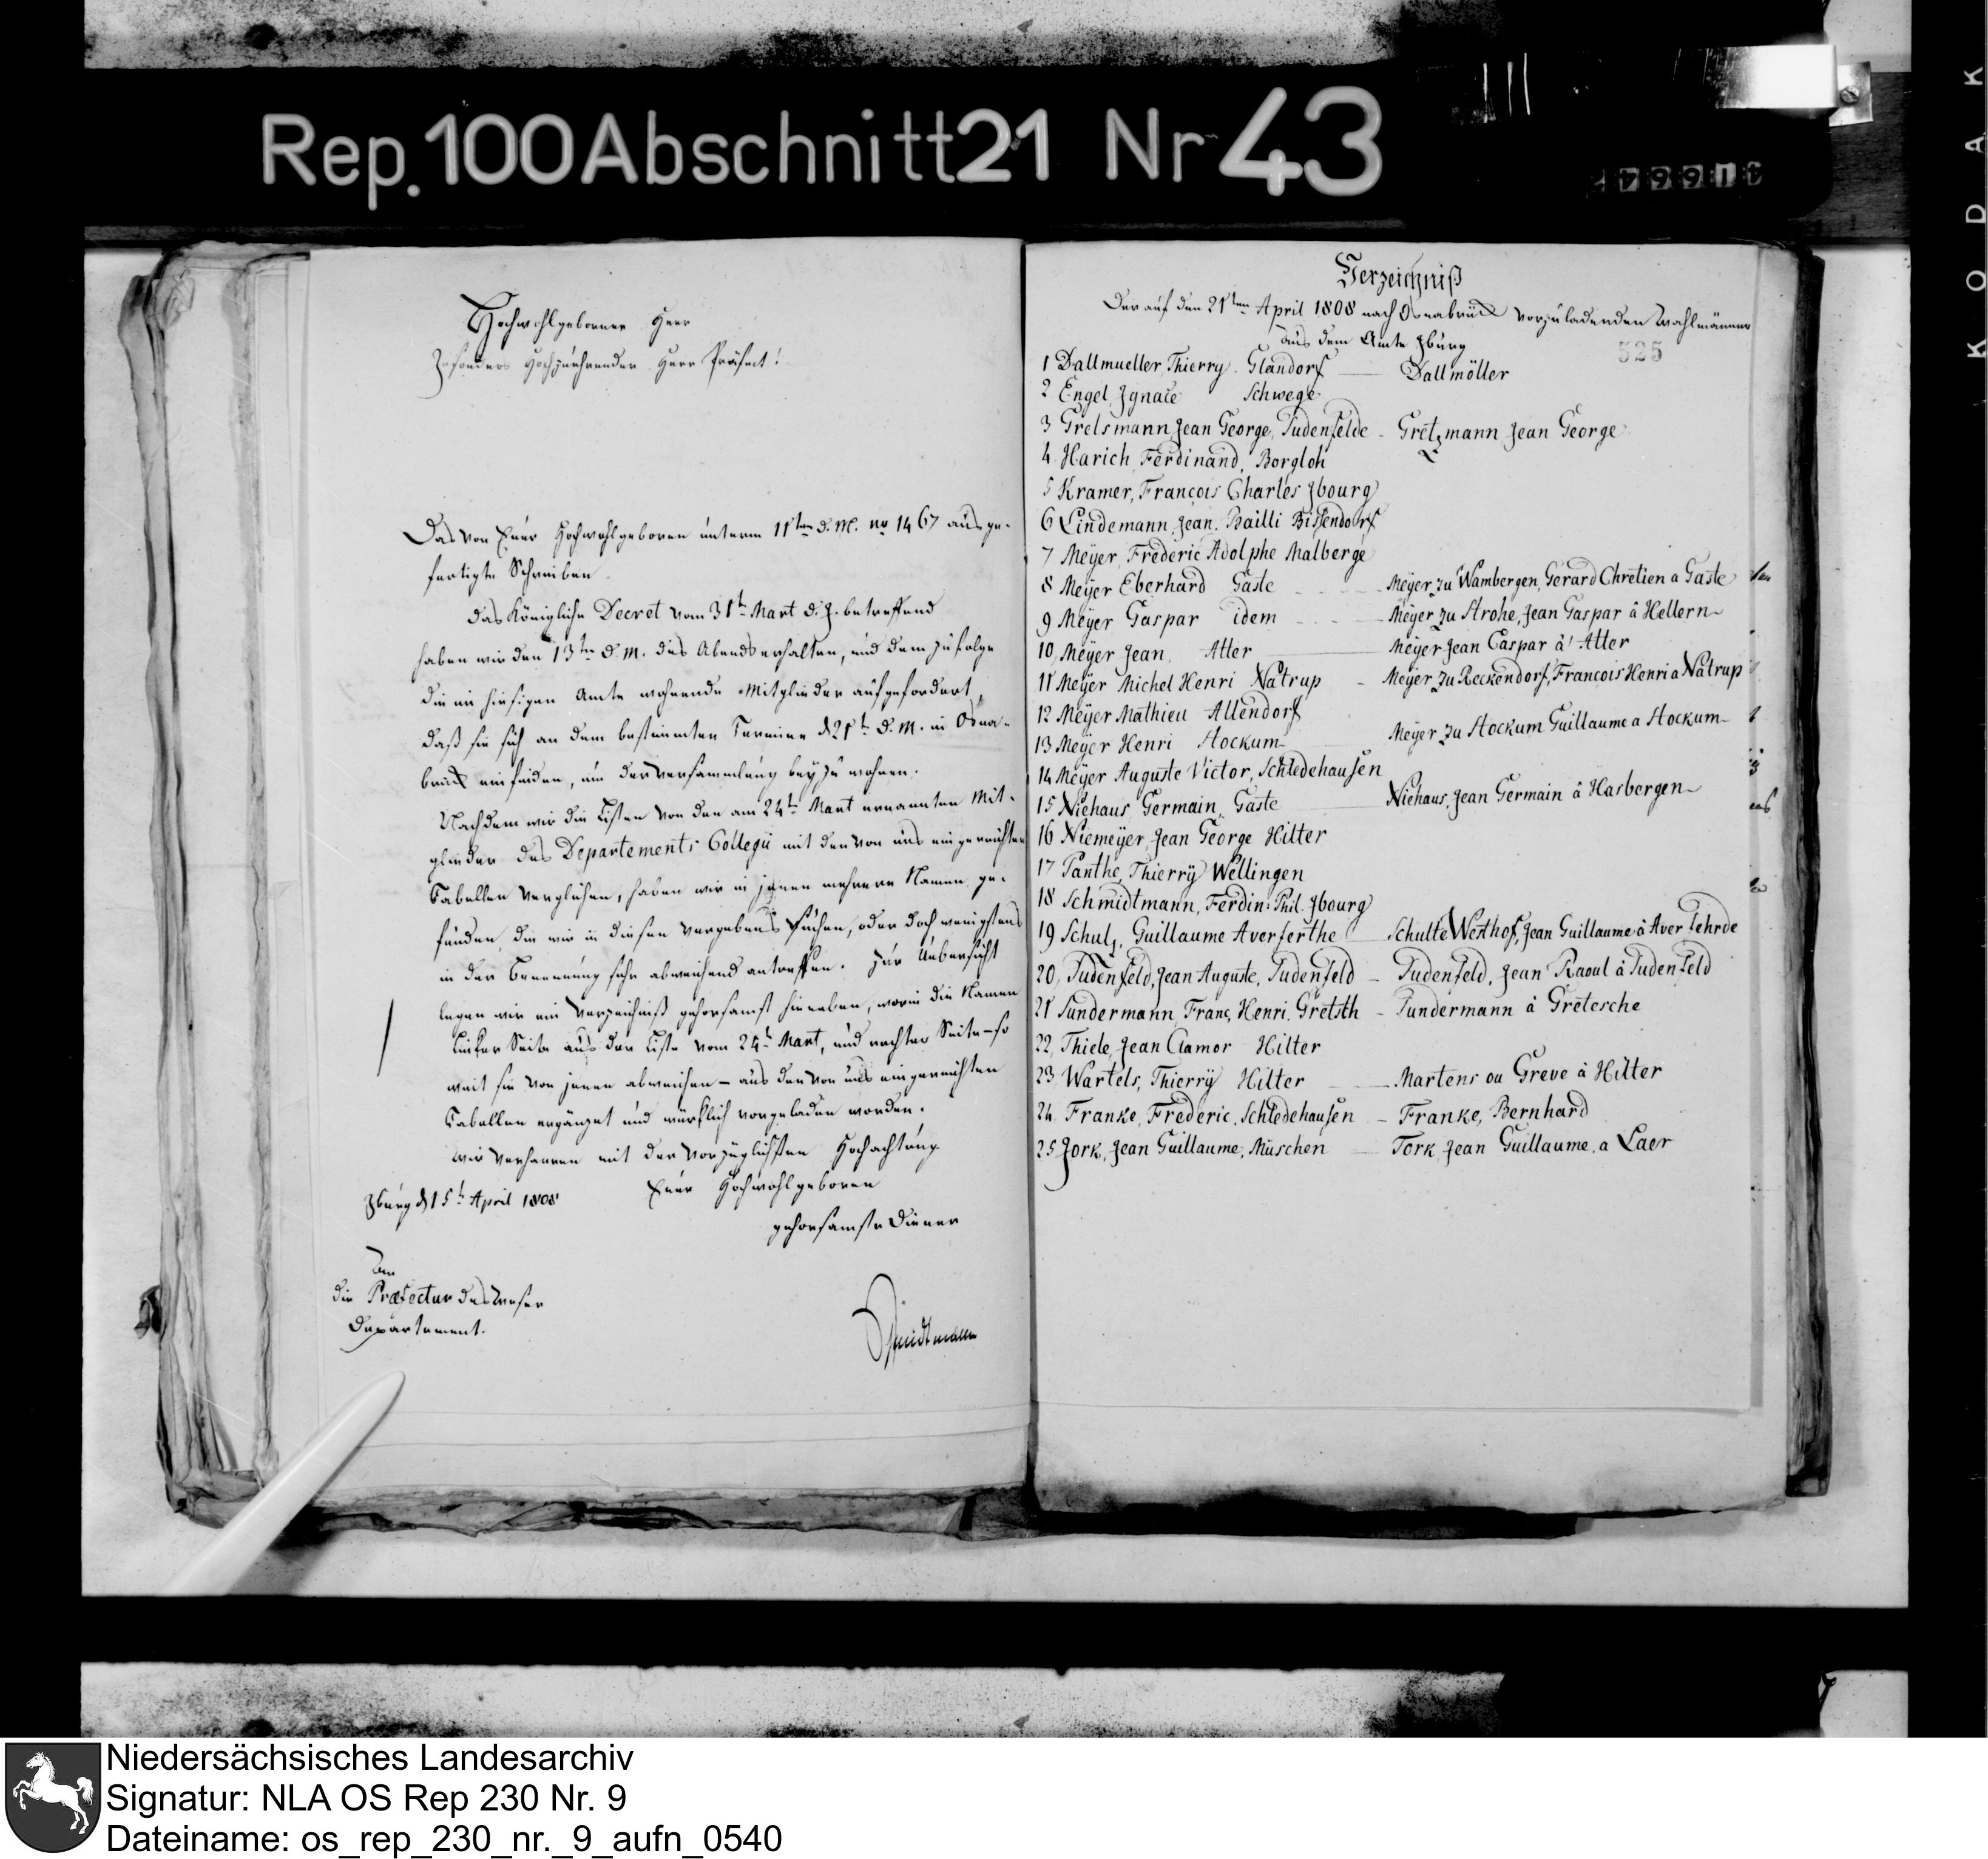 Rep. 100 Abschnitt 21 Nr 43
KODAK
Hochwohlgeborner Herr
Besonders Hochzuehrender Herr Präfect!
Das von Euer Hochwohlgeboren unterm 11ten d. M. no 1467 ausge-
fertigte Schreiben
das Königliche Decret vom 31t Mart d. J. betreffend
haben wir den 13tn d. M. des Abends erhalten, und dem zufolge
die im hiesigen Amte wohnende Mitglieder aufgefordert,
daß sie sich an dem bestimmten Termine d 21t d. M. in Osna-
brück einfinden, um der Versammlung beyzuwohnen.
Nachdem wir die Listen von den am 24t Mart ernannten Mit-
glieder des Departements Collegii mit den von uns eingereichten
Tabellen verglichen, haben wir in jenen mehrere Namen ge-
funden, die wir in diesen vergebens suchen, oder doch wenigstens
in der Benennung sehr abweichend antreffen. Zur Uebersicht
legen wir ein Verzeichniß gehorsamst hieneben, worin die Namen
linker Seite aus der Liste vom 24t Mart, und rechter Seite – so
weit sie von jenen abweichen – aus den von uns eingereichten
Tabellen ergänzet und würklich vorgeladen worden.
Wir verharren mit der vorzüglichsten Hochachtung
Euer Hochwohlgeboren
Iburg d 15t April 1808
gehorsamste Diener
An
die Præfectur des Weser
Departement.
Schmidtmann
Verzeichniß
Der auf den 21ten April 1808 nach Osnabrück vorzuladenden Wahlmänner
aus dem Amte Iburg
525
1 Dallmueller, Thierry. Glandorf — Dallmöller
2 Engel, Ignace Schwege
3 Gretsmann, Jean George, Sudenfelde - Gretzmann Jean George
4 Harich, Ferdinand, Borgloh
5 Kramer, François Charles Ibourg
6 Lindemann, Jean. Bailli Bissendorf
7 Meÿer, Frederic Adolphe Malberge
8 Meÿer Eberhard Gaste - - - Meÿer zu Wambergen, Gerard Chretien a Gaste
9 Meÿer Gaspar idem - - - Meÿer zu Strohe, Jean Gaspar â Hellern
10 Meÿer Jean. Atter — Meÿer Jean Caspar â Atter
11 Meÿer Michel Henri Natrup - Meÿer zu Reckendorf, Francois Henri a Natrup
12 Meÿer Mathieu Allendorf
13 Meÿer Henri Stockum Meÿer zu Stockum Guillaume a Stockum
14 Meÿer Auguste Victor, Schledehausen
15 Niehaus, Germain, Gaste Niehaus, Jean Germain â Hasbergen
16 Niemeÿer, Jean George Hilter
17 Panthe, Thierrÿ Wellingen
18 Schmidtmann, Ferdin: Phil. Ibourg
19 Schulz, Guillaume Averferthe Schulte Westhof, Jean Guillaume â Aver Fehrde
20 Sudenfeld, Jean Auguste, Sudenfeld - Sudenfeld, Jean Raoul â Sudenfeld
21 Sundermann, Franc, Henri. Gretsth - Sundermann â Gretesche
22 Thiele, Jean Clamor Hilter
23 Wartels, Thierrÿ Hilter — Martens ou Greve â Hilter
24 Franke, Frederic, Schledehausen - Franke, Bernhard
25 Jork, Jean Guillaume, Müschen — Tork, Jean Guillaume, a Laer
Niedersächsisches Landesarchiv
Signatur: NLA OS Rep 230 Nr. 9
Dateiname: os_rep_230_nr._9_aufn_0540